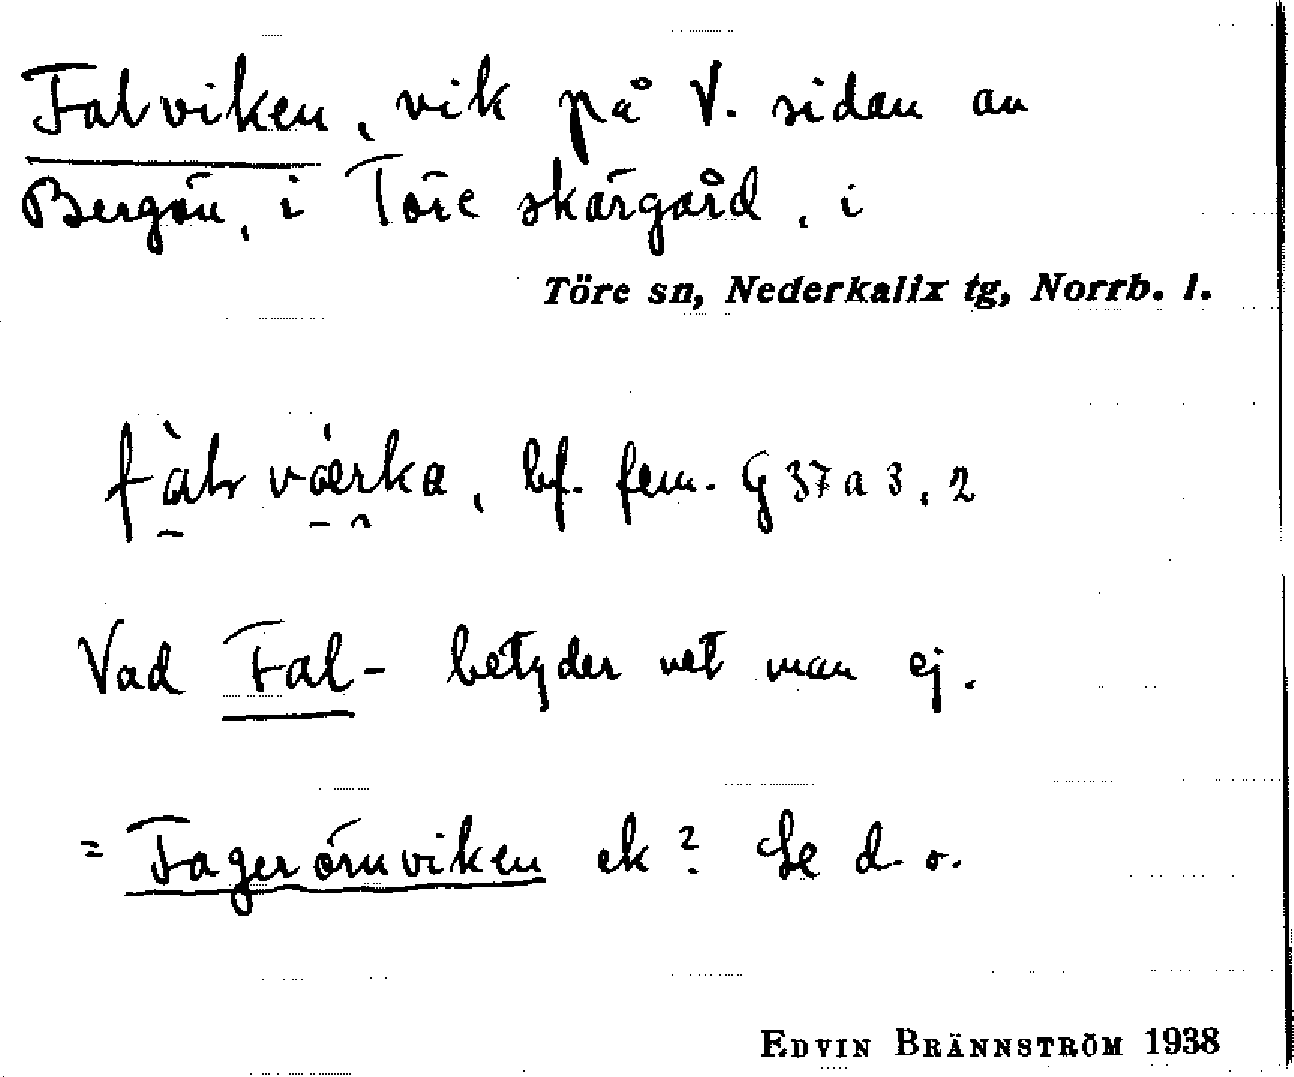 Falviken, vik på V. sidan av
Bergön, i Töre skärgård, i
Töre sn, Nederkalix tg, Norrb. l.
bf. fem. G 37 a 3, 2
Vad Fal- betyder vet man ej.
= Fagerörnviken ek? Se d. o.
EDVIN BRÄNNSTRÖM 1938